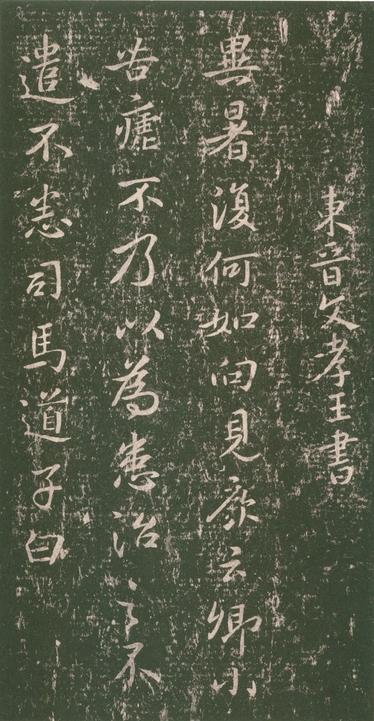 東晉文孝王書
異暑復何如向見康云卿小
苦瘧不乃以為患治之不
遣不恙司馬道子白